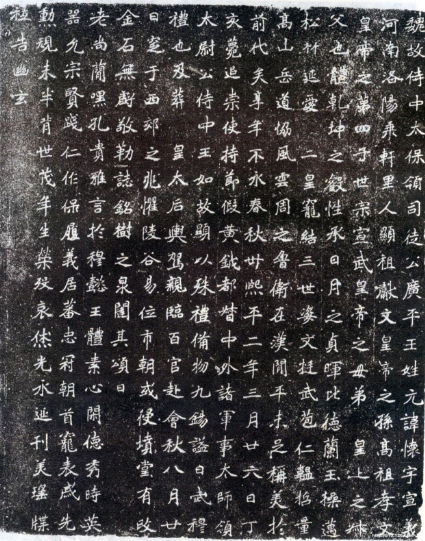 魏故侍中太保領司徒公廣平王姓元諱懷字宣義
河南洛陽乘軒里人顯祖獻文皇帝之孫高祖孝文
皇帝之第四子世宗宣武皇帝之母弟皇上之叔
父也體乾坤之叡性承日月之貞暉比德蘭玉操邁
松竹延愛二皇寵結三世姿文挺武苞仁韞哲量
高山岳道協風雲周之魯衛在漢間平未足稱美於
前代矣享年不永春秋卅熙平二年三月廿六日丁
亥薨追崇使持節假黃鉞都督中外諸軍事太師領
太尉公侍中王如故顯以殊禮備物九錫謚曰武穆
禮也及葬皇太后輿駕親臨百官赴會秋八月廿
日窆于西郊之兆懼陵谷易位市朝或侵墳堂有改
金石無虧敬勒誌銘樹之泉闥其頌曰
老尚簡嘿孔貴雅言於穆懿王體素心閑德秀時英
器允宗賢踐仁作保履義居蕃忠冠朝首寵表戚先
動規未半背世茂年生榮歿哀休光永延刊美瑤牒
祗告幽玄